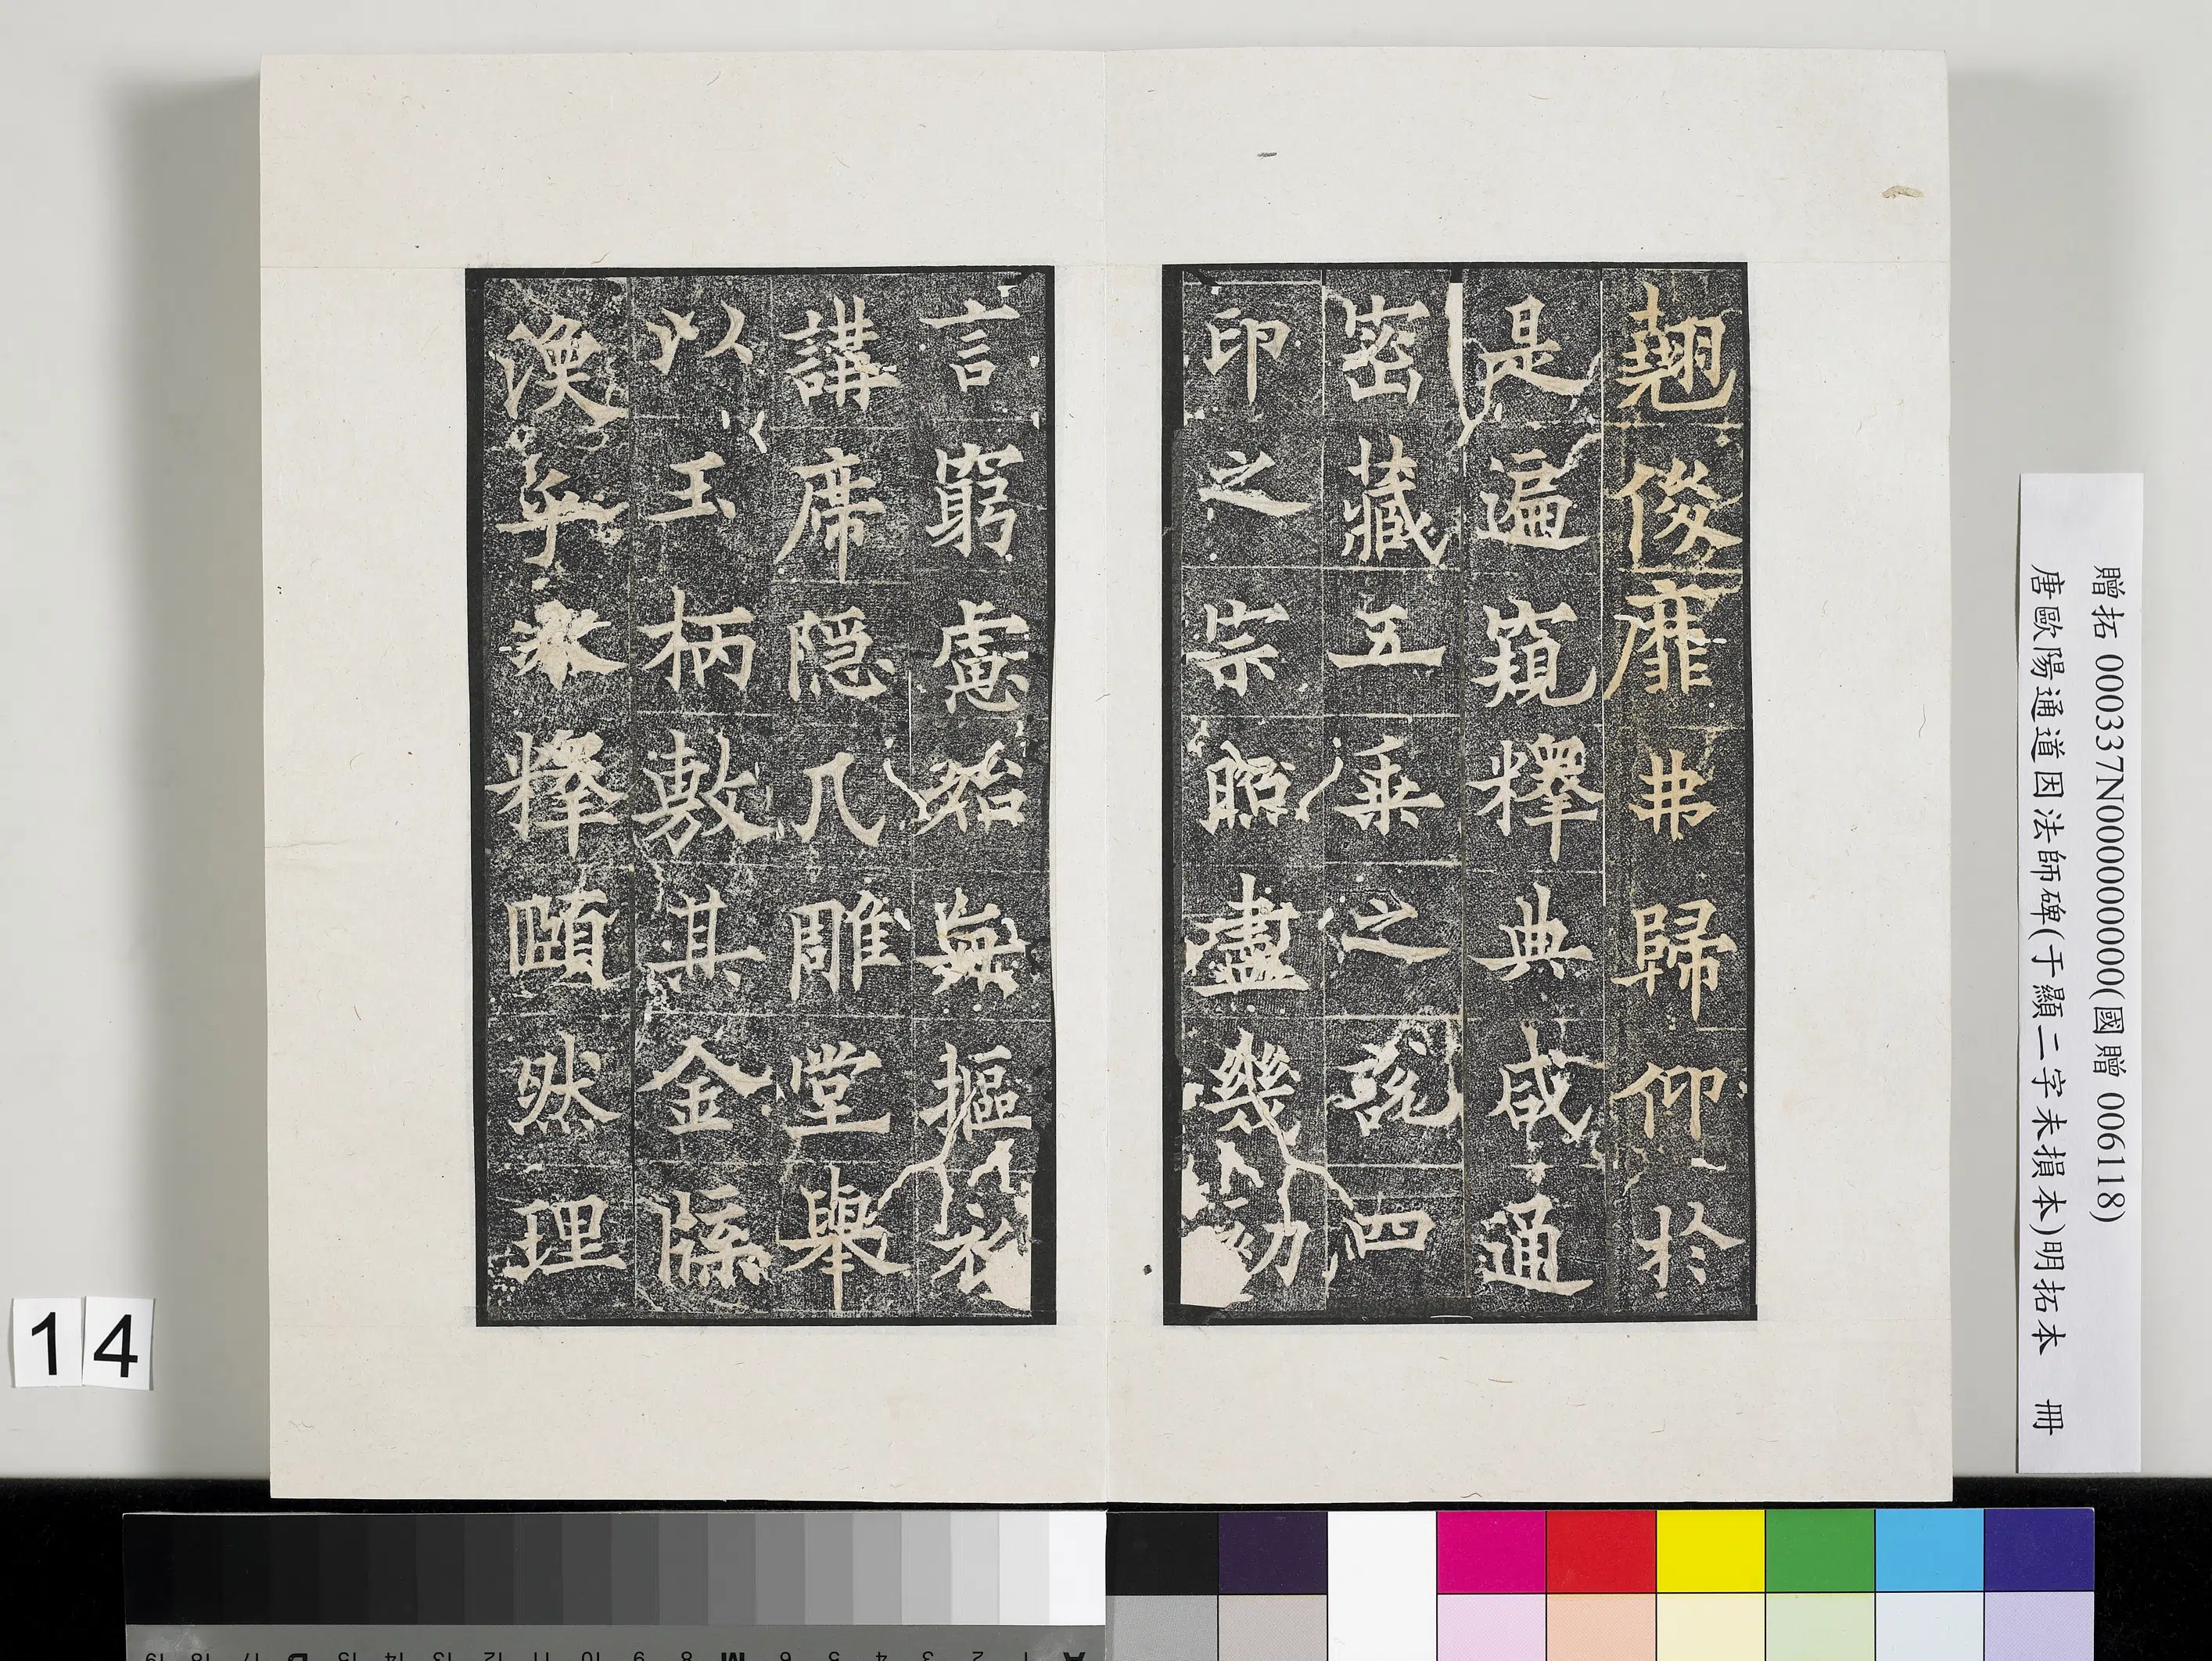 翹俊靡弗歸仰於
是遍窺釋典咸通
密藏五乘之說四
印之宗照盡幾初
言窮慮始無摳衣
講席隱几雕堂舉
以玉柄敷其金牒
渙乎冰釋頤然理
贈拓 000337N000000000(國贈 006118)
唐歐陽通道因法師碑(于顯二字未損本)明拓本 冊
14